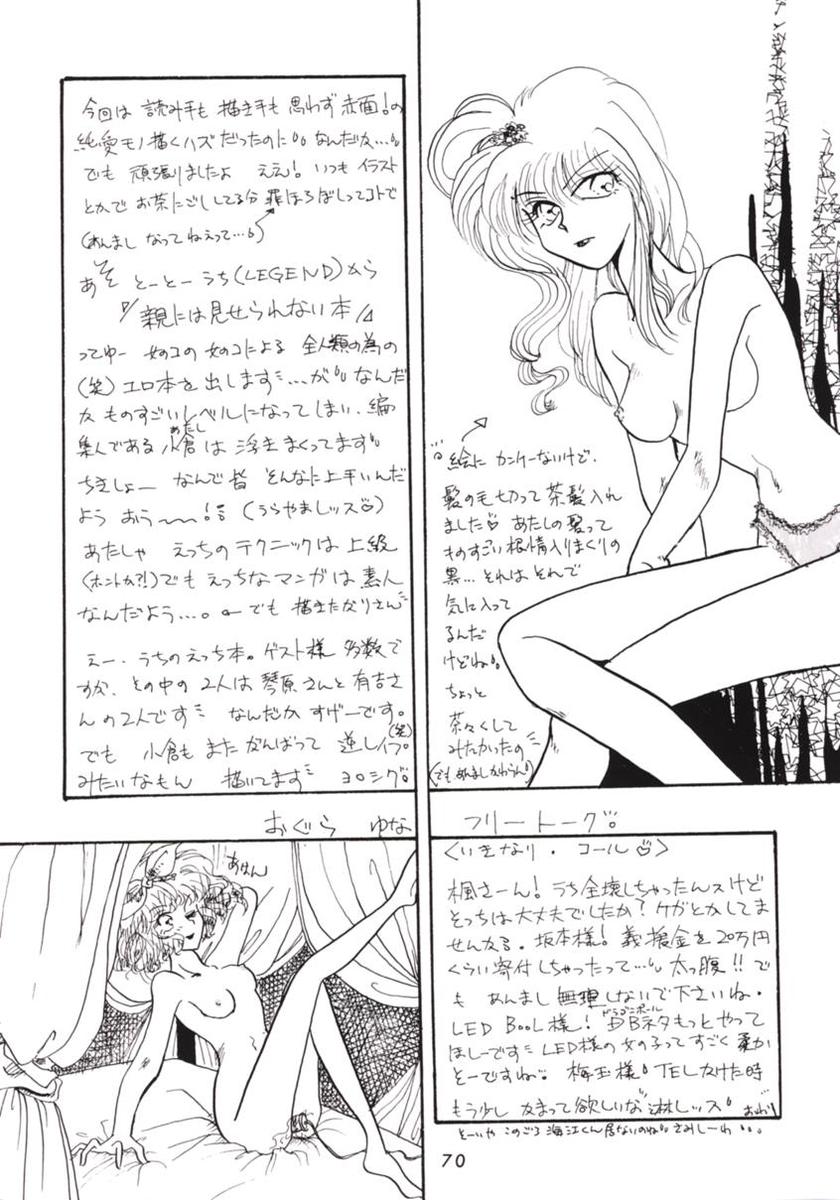 今回は 読み手も 描き手も 思わず 赤面!の
純愛モノ描くハズだったのに なんだか…
でも 頑張りましたよ ええ! いつも イラスト
とかで お茶にごししてる分 罪ほろぼしってコトで
(あんまし なってねえって…)
あそ とーとー うち(LEGEND)から
『親には見せられない本』
ってゆー 女のコの 女のコによる 全人類の為の
(笑) エロ本を出します…が なんだ
か ものすごいレベルになってしまい、編
あたし
集人である 小倉は 浮きまくってます
ちきしょー なんで皆 そんなに上手いんだ
よう おう〜〜! (うらやましッス♡)
あたしゃ えっちのテクニックは 上級
(ホントか?!) でも えっちなマンガは 素人
なんだよう…。 でも 描きたがりさん
えー、うちのえっち本。ゲスト様 多数で
すが、その中の 2人は 琴原さんと 有吉さ
んの2人です なんだか すげーです。
でも 小倉も また がんばって 逆レイプ(笑)
みたいなもん 描いてます ヨロシク
絵に カンケーないけど、
髪の毛切って 茶髪入れ
ました♡ あたしの髪って
ものすごい 根情入りまくりの
黒… それは それで
気に入って
るんだ
けどね
ちょっと
茶々くして
みたかったの
(でも あんましかわらん)
おぐら ゆな フリートーク
あはん
<いきなり・コール♡>
楓さーん! うち全壊しちゃったんスけど
そっちは大丈夫でしたか? ケガとかしてま
せんかる。坂本様! 義援金を20万円
くらい寄付しちゃったって… 太っ腹!! で
も あんまし 無理しないで下さいね。
ドラゴンボール
LED BOOL様! DBネタもっとやって
ほしーです LED様の女の子ってすごく 柔か
そーですね。 梅玉様 TELかけた時
もう少し かまって欲しいな 淋しッス おわり
とーいや このごろ 海江くん居ないのね さみしーわ…
70